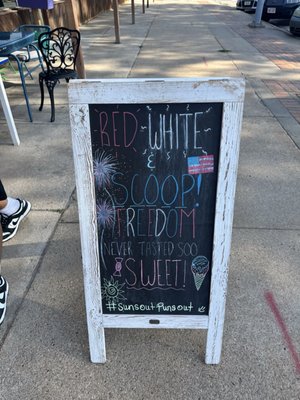 RED, WHITE
&
SCOOP!
FREEDOM
NEVER TASTED SOO
SWEET!
#SunsoutPunsout